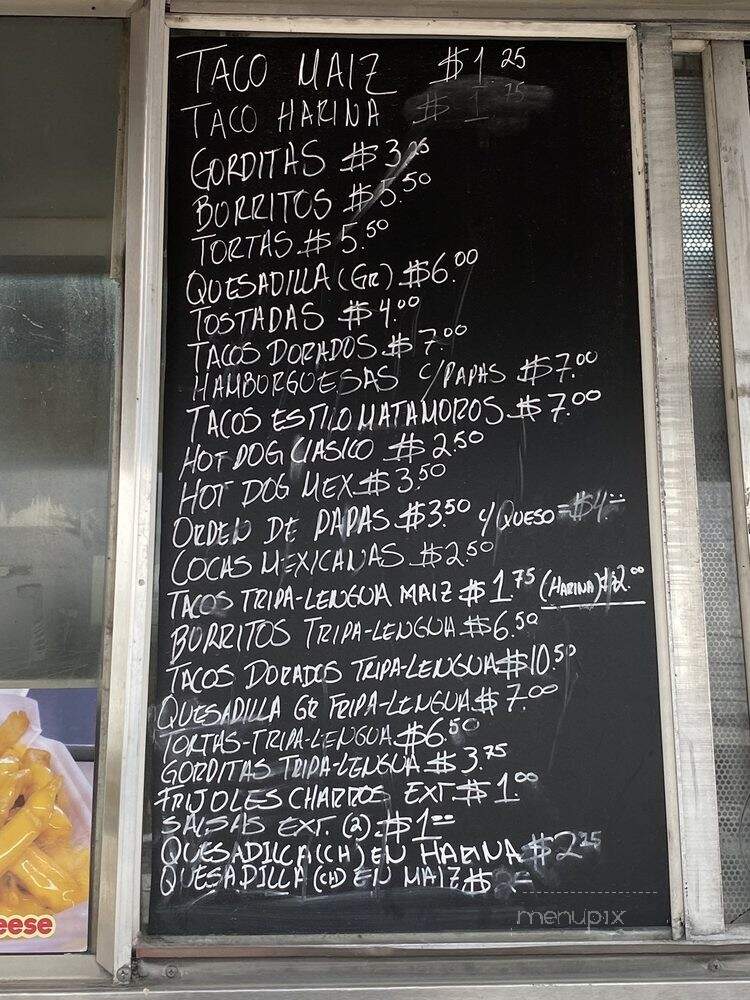 TACO MAIZ $1.25
TACO HARINA $1.75
GORDITAS $3.25
BORRITOS $5.50
TORTAS $5.50
QUESADILLA (GR) $6.00
TOSTADAS $4.00
TACOS DORADOS $7.00
HAMBORGUESAS C/PAPAS $7.00
TACOS ESTILO MATAMOROS $7.00
HOT DOG CLASICO $2.50
HOT DOG MEX $3.50
ORDEN DE PAPAS $3.50 y/QUESO = $4.--
COCAS MEXICANAS $2.50
TACOS TRIPA-LENGUA MAIZ $1.75 (HARINA) $2.00
BURRITOS TRIPA-LENGUA $6.50
TACOS DORADOS TRIPA-LENGUA $10.50
QUESADILLA GR TRIPA-LENGUA $7.00
TORTAS-TRIPA-LENGUA $6.50
GORDITAS TRIPA-LENGUA $3.75
FRIJOLES CHARROS EXT. $1.00
SALSAS EXT. (2) $1--
QUESADILLA (CH) EN HARINA $2.25
QUESADILLA (CH) EN MAIZ $2--
eese
menupix